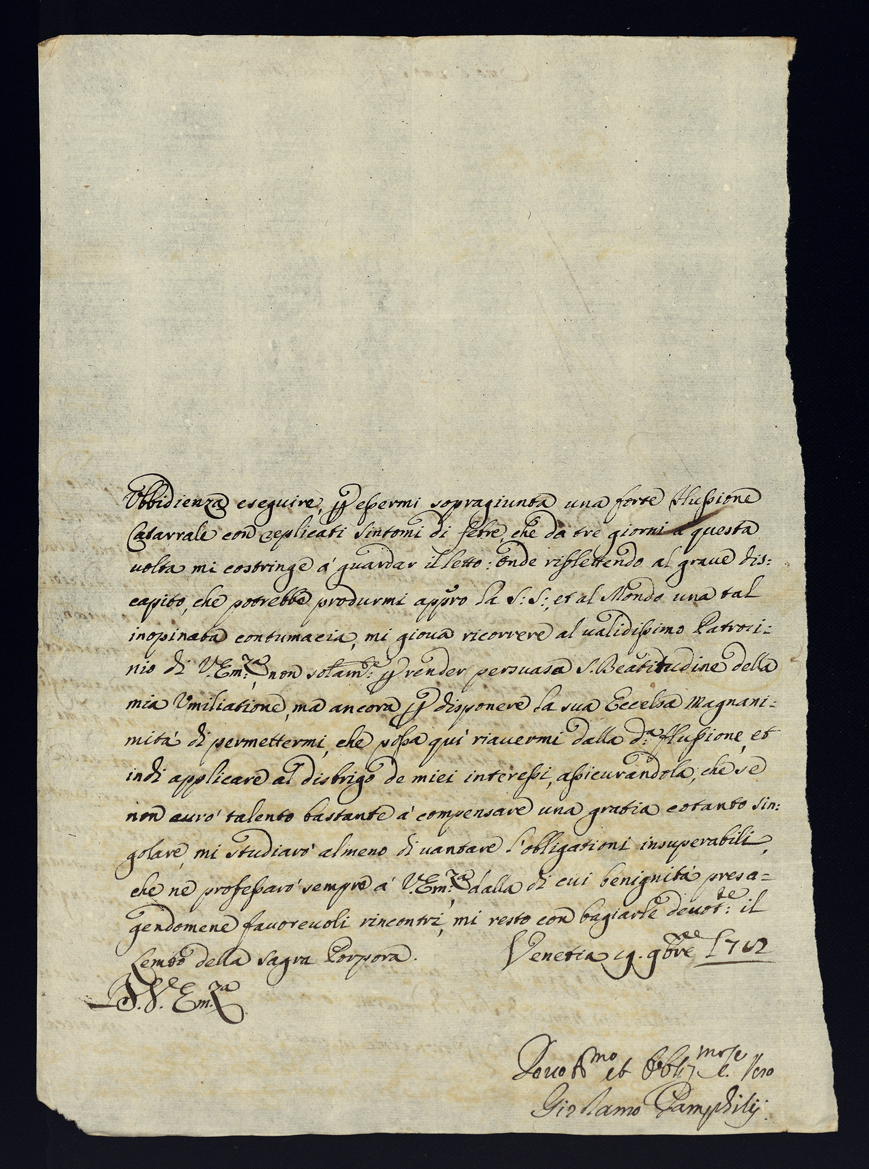 Ubbidienza eseguire, p essermi sopragiunta una forte flussione
Catarrale con replicati sintomi di febre, che da tre giorni a questa
volta mi costringe á guardar il letto: onde riflettendo al grave dis:
capito, che potrebbe produrmi appro la S: S:, et al Mondo una tal
inopinata contumacia, mi giova ricorrere al validissimo Patroci:
nio di V. Em:za, non solamte p render persuasa S. Beatitudine della
mia Umiliatione, ma ancora p disponere la sua Eccelsa magnani:
mitá di permettermi, che possa quí riavermi dalla da flussione, et
indi applicare al disbrigo de miei interessi, assicurandola, che se
non auró talento bastante á compensare una gratia cotanto sin:
golare, mi studiaró almeno di vantare l'obligationi insuperabili,
che ne professaró sempre á V. Em:za dalla di cui benignitá presa:
gendomene favorevoli rincontri, mi resto con bagiarle devote: il
Lembo della sagra Porpora. Venetia 19. 9bre 1712
D. V. Em:za
Devotmo et Obblmo Se. Vero
Girolamo Pamphilij